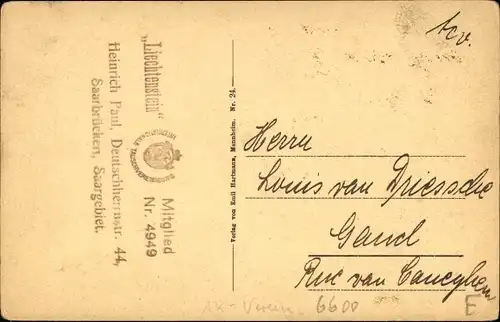 "Liechtenstein"
Mitglied
Nr. 4949
Heinrich Paul, Deutschherrnstr. 44,
Saarbrücken, Saargebiet.
Verlag von Emil Hartmann, Mannheim. Nr. 24.
Herrn
Louis van Driessche
Gand
Rue van
6600
E